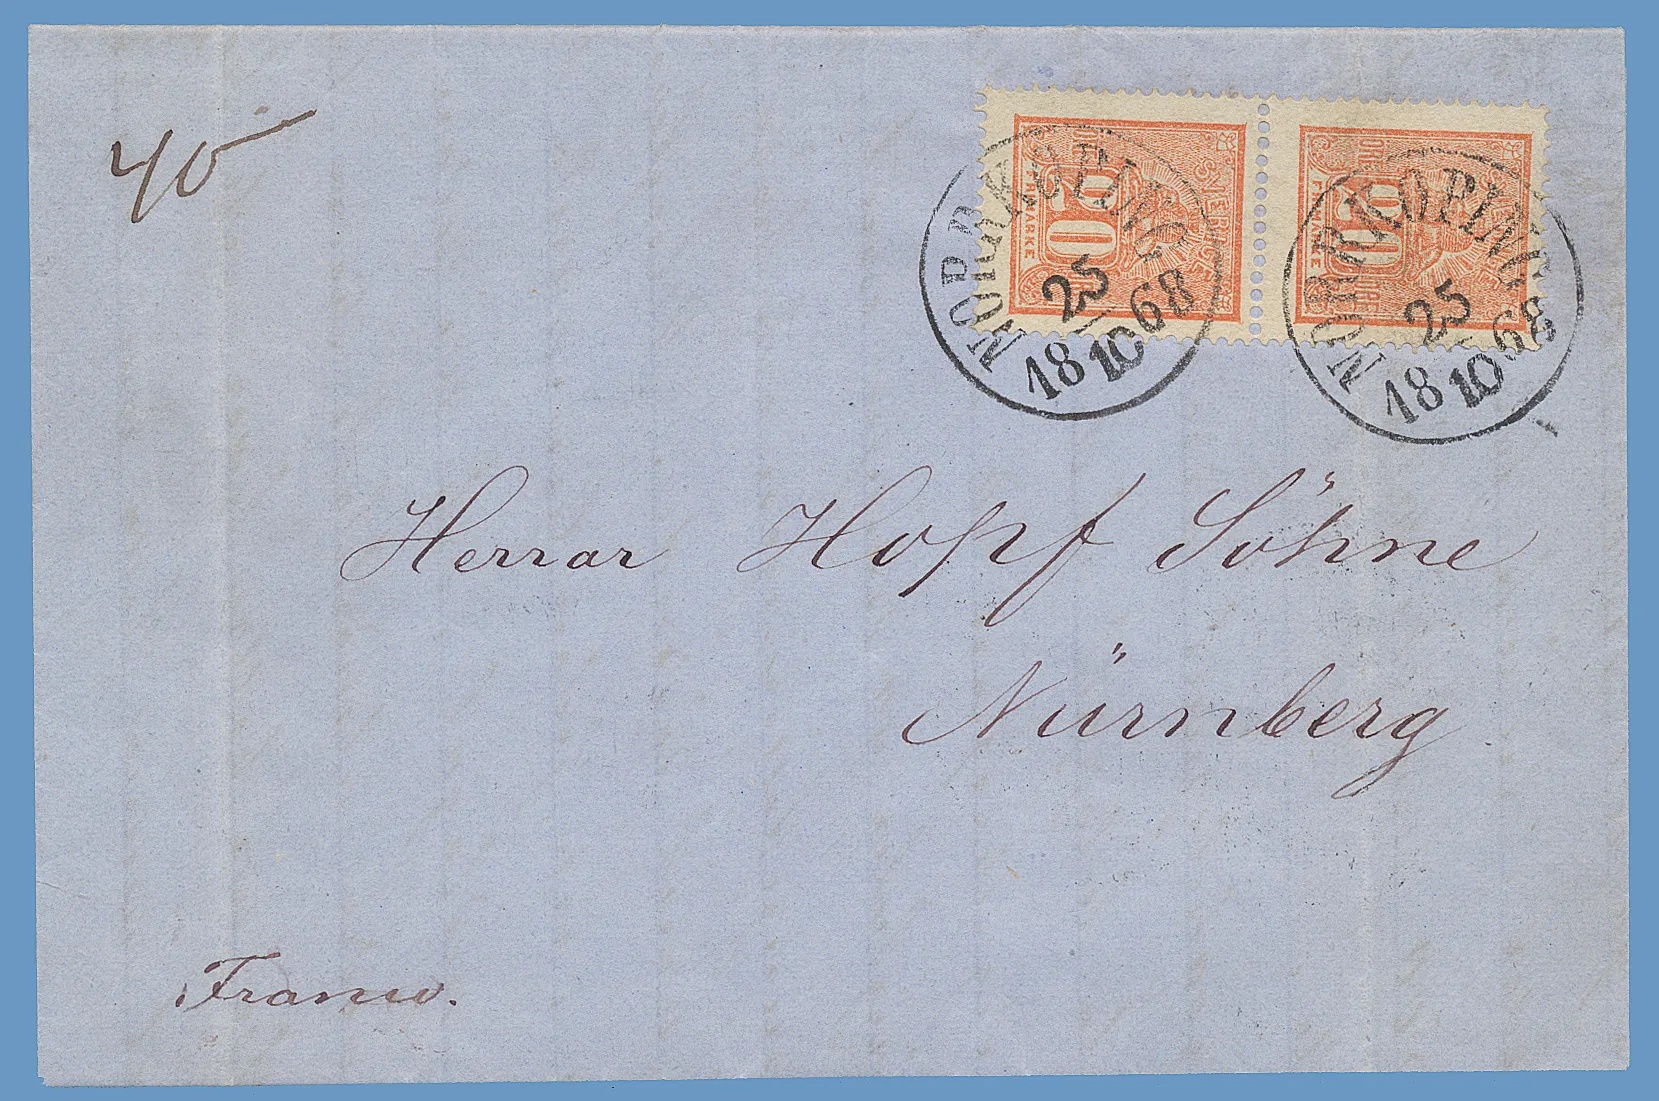 40
NORRKÖPING
25
18 10 68
NORRKÖPING
25
18 10 68
SVERIGE
20
FRIMARKE
SVERIGE
20
Herrar Hopf Söhne
Nürnberg
Franco.